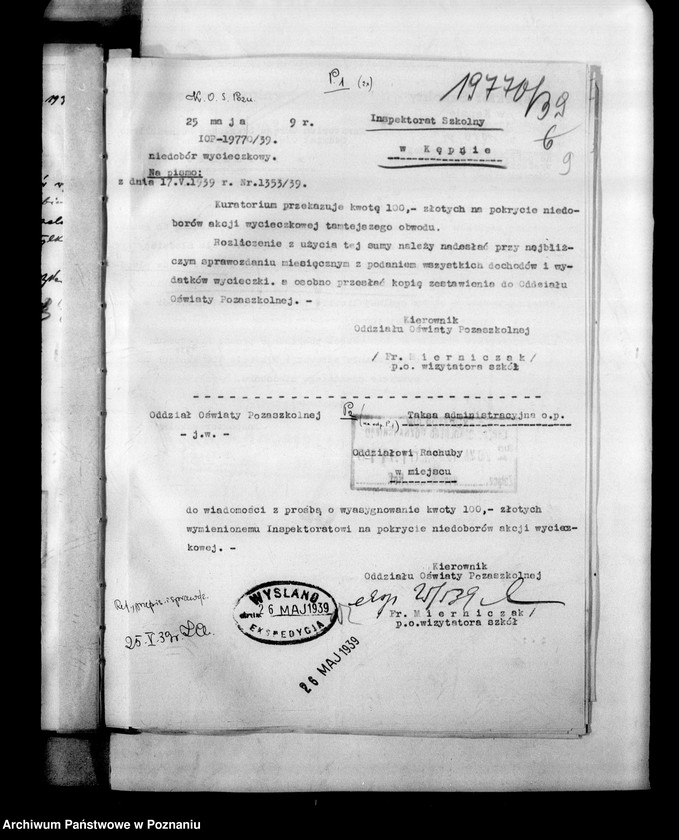 P.1 (2x)
19770/39
K. O. S. Pozn.
6
9
25 maja 9 r.
IOP-19770/39.
niedobór wycieczkowy.
Na pismo:
z dnia 17.V.1939 r. Nr.1353/39.
Inspektorat Szkolny
w Kępnie
Kuratorium przekazuje kwotę 100,- złotych na pokrycie niedo-
borów akcji wycieczkowej tamtejszego obwodu.
Rozliczenie z użycia tej sumy należy nadesłać przy najbliż-
czym sprawozdaniu miesięcznym z podaniem wszystkich dochodów i wy-
datków wycieczki. a osobno przesłać kopię zestawienia do Oddziału
Oświaty Pozaszkolnej. -
Kierownik
Oddziału Oświaty Pozaszkolnej
/ Fr. Mierniczak /
p.o. wizytatora szkół
Oddział Oświaty Pozaszkolnej
- j.w. -
P2
Taksa administracyjna o.p.
Oddziałowi Rachuby
w miejscu
do wiadomości z prośbą o wyasygnowanie kwoty 100,- złotych
wymienionemu Inspektoratowi na pokrycie niedoborów akcji wyciecz-
kowej. -
Kierownik
Oddziału Oświaty Pozaszkolnej
Fr. Mierniczak /
p.o.wizytatora szkół
WYSŁANO
dnia 26 MAJ 1939
EKSPEDYCJA
26 MAJ 1939
25.V.39r
Archiwum Państwowe w Poznaniu